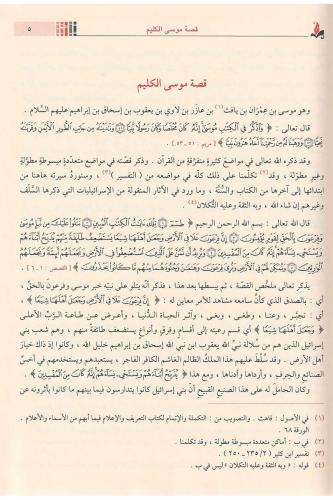 قصة موسى الكليم
٥
قصة موسى الكليم
وهو موسى بن عِمْران بن يافث(١) بن عازر بن لاوي بن يعقوب بن إسحاق بن إبراهيم عليهم السلام .
قال تعالى : ﴿ وَاذْكُرْ فِي الْكِتَابِ مُوسَى إِنَّهُ كَانَ مُخْلَصًا وَكَانَ رَسُولًا نَبِيًّا ۝ وَنَادَيْنَاهُ مِنْ جَانِبِ الطُّورِ الْأَيْمَنِ وَقَرَّبْنَاهُ
نَجِيًّا ۝ وَوَهَبْنَا لَهُ مِنْ رَحْمَتِنَا أَخَاهُ هَارُونَ نَبِيًّا ﴾ [ مريم : ٥١ ـ ٥٣ ] .
وقد ذكره الله تعالى في مواضع كثيرة متفرّقة من القرآن . وذكر قصّته في مواضع متعددة مبسوطة مطوّلة
وغير مطوّلة ، وقد(٢) تكلّمنا على ذلك كلّه في مواضعه من ( التفسير )(٣) ، وسنوردُ سيرته هاهنا من
ابتدائها إلى آخرها من الكتاب والسنّة ، وما ورد في الآثار المنقولة من الإسرائيليات التي ذكرها السلف
وغيرهم إن شاء الله ، وبه الثقة وعليه التكلان(٤) .
قال الله تعالى : بسم الله الرحمن الرحيم ﴿ طسم ۝ تِلْكَ آيَاتُ الْكِتَابِ الْمُبِينِ ۝ نَتْلُو عَلَيْكَ مِنْ نَبَإِ مُوسَى
وَفِرْعَوْنَ بِالْحَقِّ لِقَوْمٍ يُؤْمِنُونَ ۝ إِنَّ فِرْعَوْنَ عَلَا فِي الْأَرْضِ وَجَعَلَ أَهْلَهَا شِيَعًا يَسْتَضْعِفُ طَائِفَةً مِنْهُمْ يُذَبِّحُ أَبْنَاءَهُمْ
وَيَسْتَحْيِي نِسَاءَهُمْ إِنَّهُ كَانَ مِنَ الْمُفْسِدِينَ ۝ وَنُرِيدُ أَنْ نَمُنَّ عَلَى الَّذِينَ اسْتُضْعِفُوا فِي الْأَرْضِ وَنَجْعَلَهُمْ أَئِمَّةً وَنَجْعَلَهُمُ
الْوَارِثِينَ ۝ وَنُمَكِّنَ لَهُمْ فِي الْأَرْضِ وَنُرِيَ فِرْعَوْنَ وَهَامَانَ وَجُنُودَهُمَا مِنْهُمْ مَا كَانُوا يَحْذَرُونَ ﴾ [ القصص : ١ ـ ٦ ] .
يذكر تعالى ملخص القصّة ، ثم يبسطها بعد هذا ، فذكر أنه يتلو على نبيّه خبر موسى وفرعون بالحقّ ،
أي : بالصدق الذي كأنّ سامعه مشاهد للأمر معاين له : ﴿ إِنَّ فِرْعَوْنَ عَلَا فِي الْأَرْضِ وَجَعَلَ أَهْلَهَا شِيَعًا ﴾ ،
أي : تجبّر ، وعتا ، وطغى ، وبغى ، وآثر الحياة الدنيا ، وأعرض عن طاعة الربّ الأعلى
﴿ وَجَعَلَ أَهْلَهَا شِيَعًا ﴾ أي قسم رعيته إلى أقسام وفرق وأنواع يستضعف طائفة منهم ، وهم شعب بني
إسرائيل الذين هم من سُلالة نبيّ الله يعقوب ابن نبي الله إسحاق بن إبراهيم خليل الله ، وكانوا إذ ذاك خيار
أهل الأرض . وقد سلّط عليهم هذا الملك الظالم الغاشم الكافر الفاجر ، يستعبدهم ويستخدمهم في أخسّ
الصنائع والحِرف ، وأرداها وأدناها ، ومع هذا ﴿ يُذَبِّحُ أَبْنَاءَهُمْ وَيَسْتَحْيِي نِسَاءَهُمْ إِنَّهُ كَانَ مِنَ الْمُفْسِدِينَ ﴾
وكان الحامل له على هذا الصنيع القبيح أن بني إسرائيل كانوا يتدارسون فيما بينهم ما كانوا يأثرونه عن
(١) في الأصول : قاهث . والتصويب من : التكملة والإتمام لكتاب التعريف والإعلام فيما أبهم من الأسماء والأعلام .
الورقة ٦٨ .
(٢) في ب : أماكن متعددة مبسوطة مطولة ، وقد تكلمنا .
(٣) تفسير ابن كثير (٢/٢٣٥ ـ ٢٥٠) .
(٤) قوله : «وبه الثقة وعليه التكلان» ليس في ب .